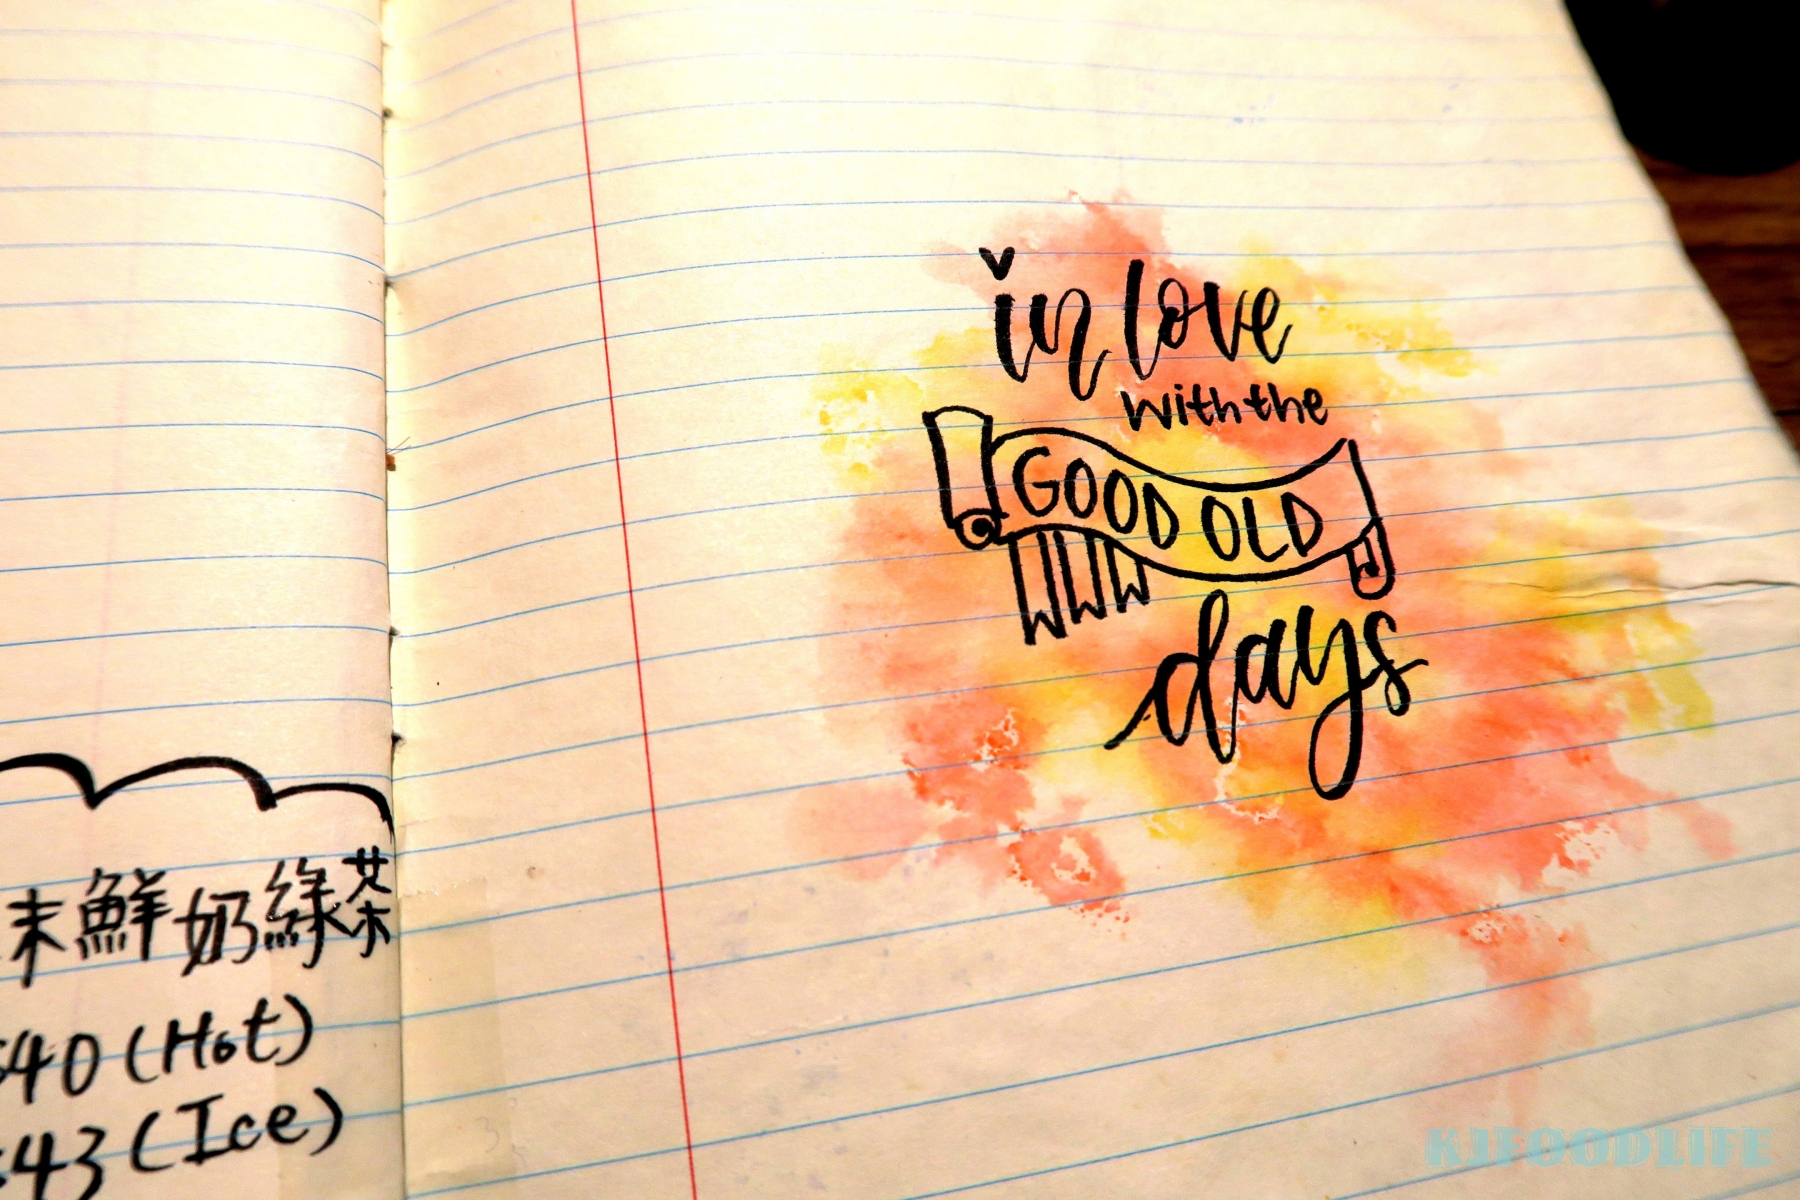 末鮮奶綠茶
$40 (Hot)
$43 (Ice)
in love
with the
GOOD OLD
days
KIFOODLIFE